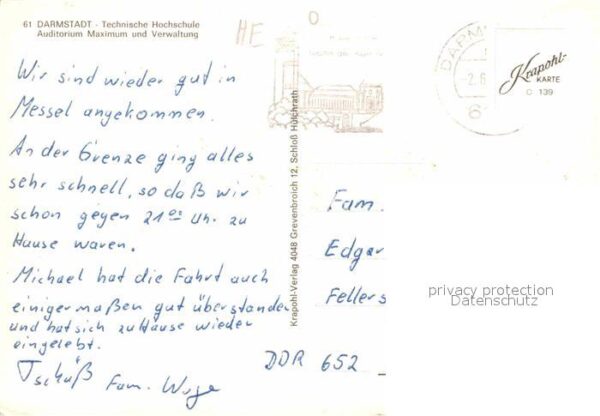 61 DARMSTADT - Technische Hochschule
Auditorium Maximum und Verwaltung
Wir sind wieder gut in
Messel angekommen.
An der Grenze ging alles
sehr schnell, so daß wir
schon gegen 21⁰⁰ Uhr. zu
Hause waren.
Michael hat die Fahrt auch
einigermaßen gut überstanden
und hat sich zuHause wieder
eingelebt.
Tschüß
Fam.
Krapohl-Verlag 4048 Grevenbroich 12, Schloß Hülchrath
HE
O
DARM
6
Krapohl-
KARTE
D 139
Fam.
Edgar
Fellers
DDR 652
privacy protection
Datenschutz